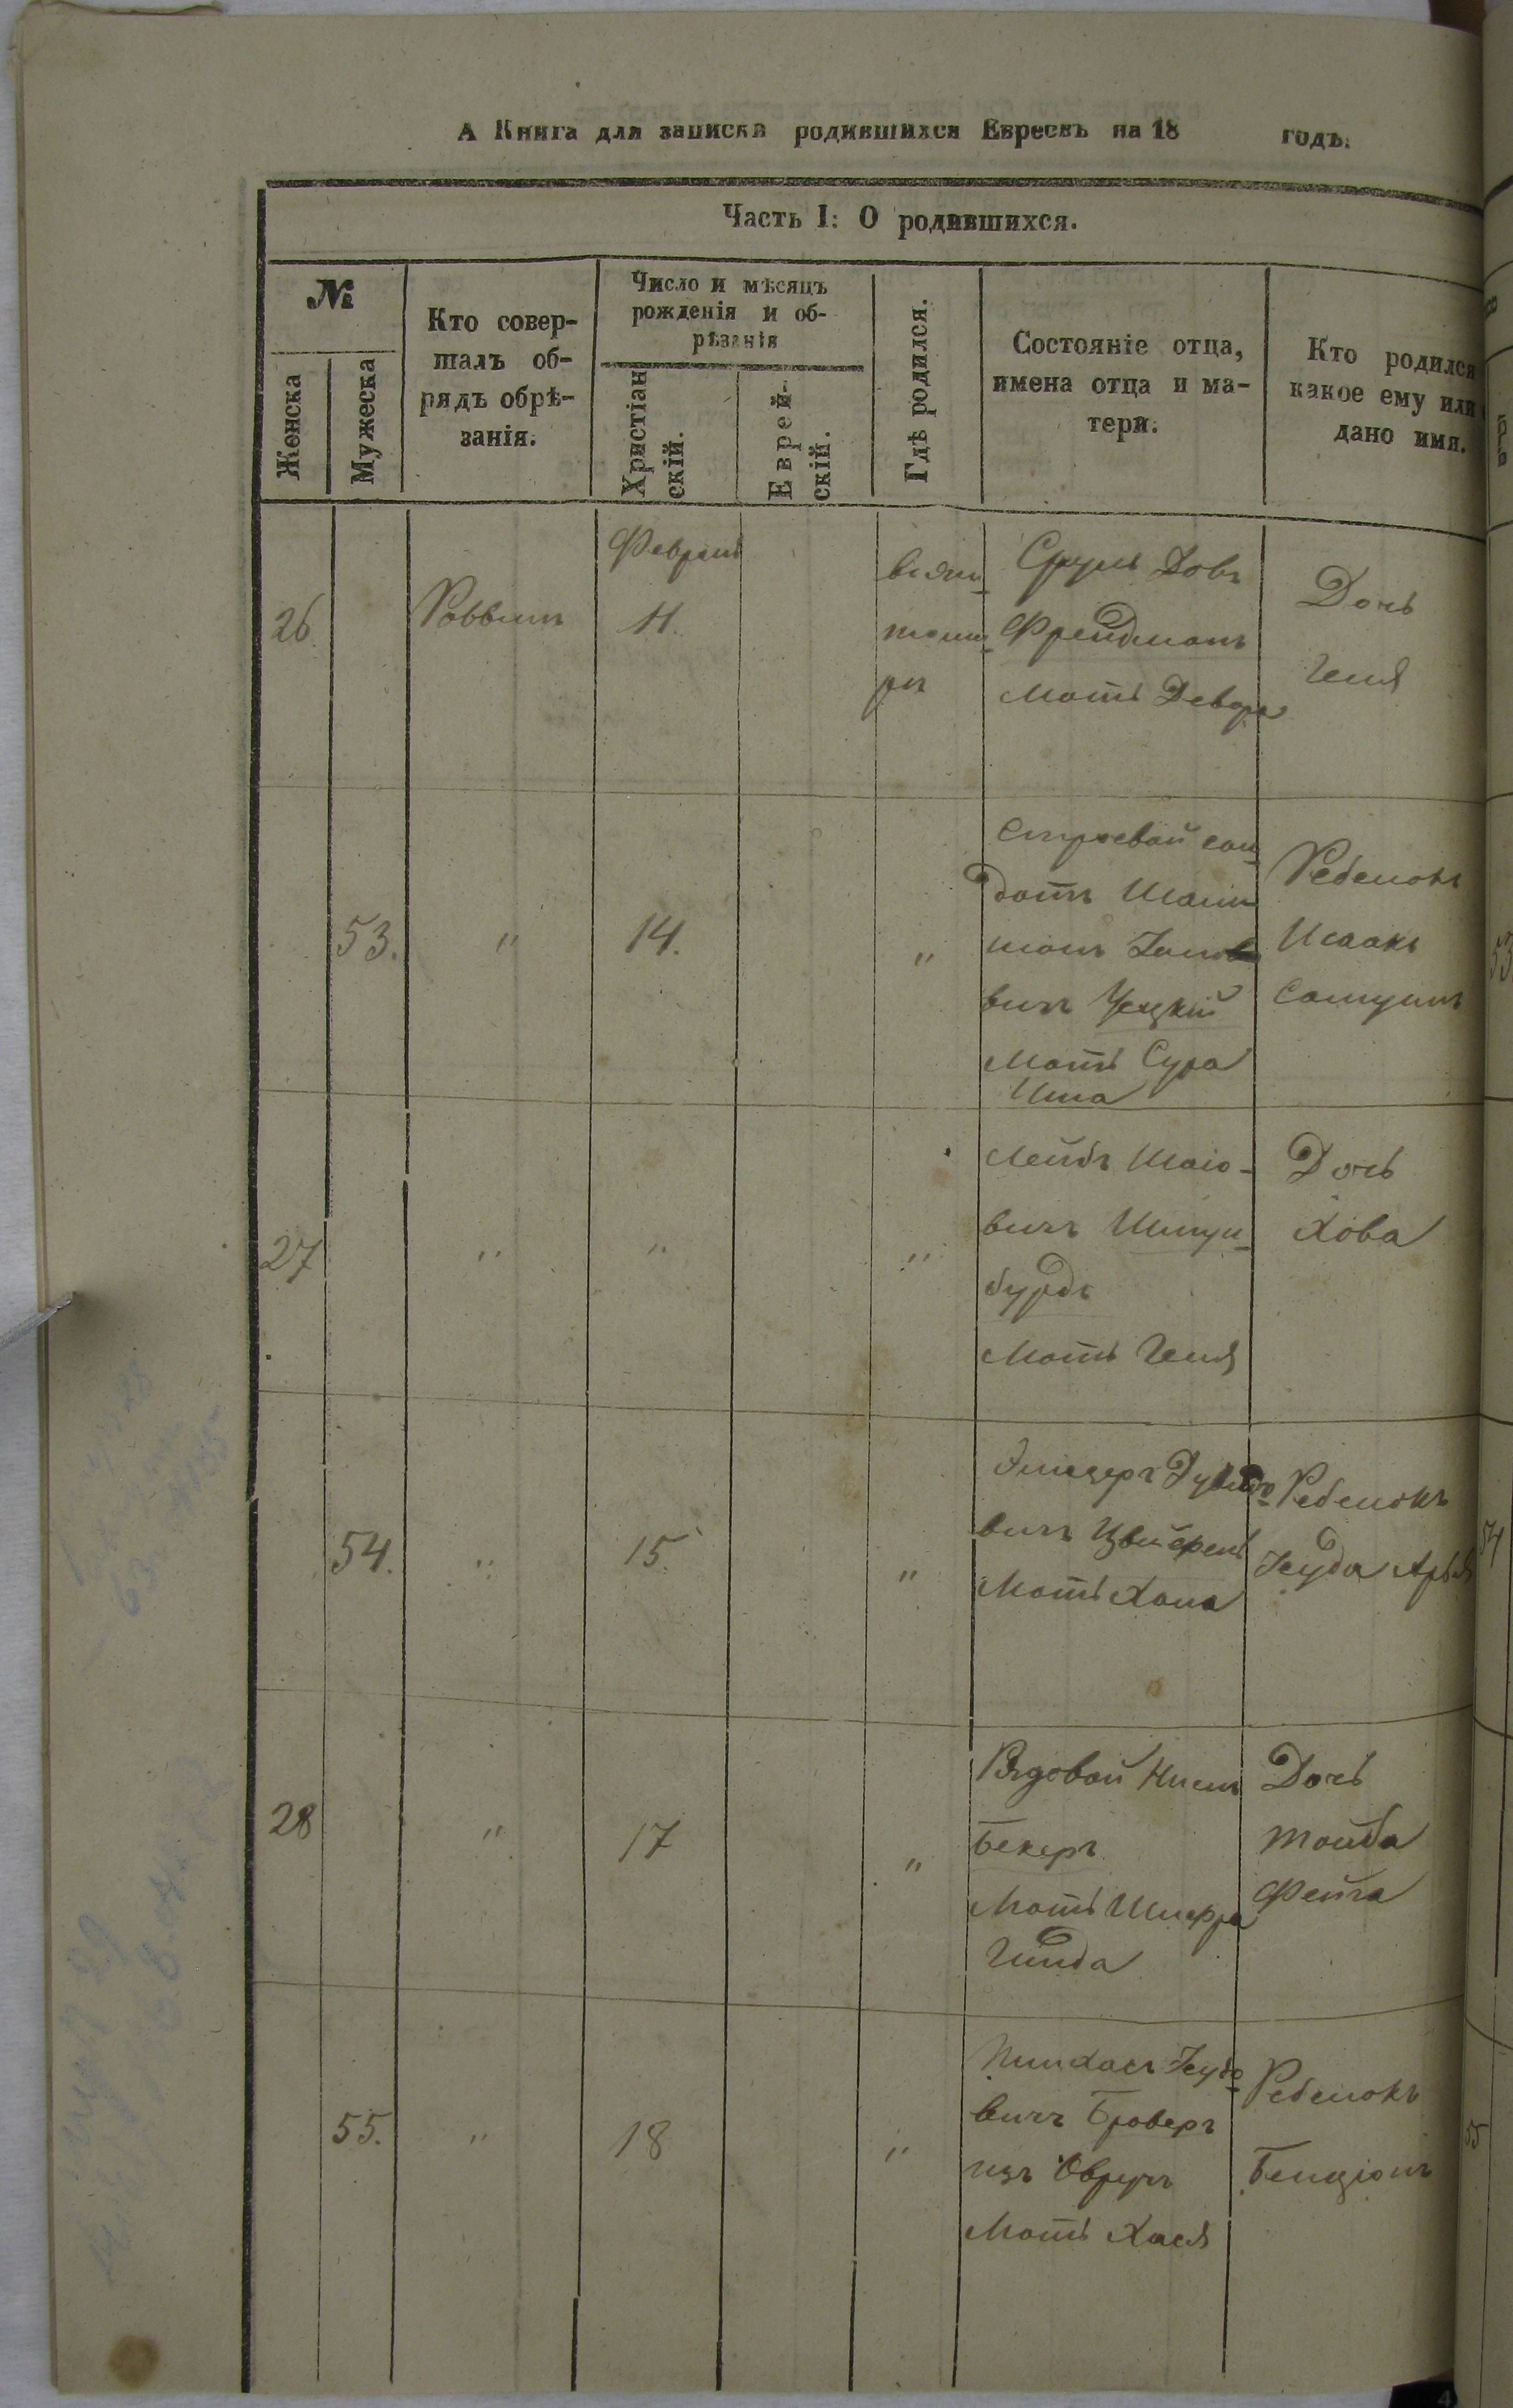 А Книга для записки родившихся Евреевъ на 18 годъ.
Часть I: О родившихся.
№
Женска
Мужеска
Кто совер-
шалъ об-
рядъ обрѣ-
занія.
Число и мѣсяцъ
рожденія и об-
рѣзанія
Христіан
скій.
Еврей-
скій.
Гдѣ родился.
Состояніе отца,
имена отца и ма-
тери.
Кто родился
какое ему или
дано имя.
26
Раввинъ
Февраль
11.
въ Жи-
томи-
рѣ
Сруль Довъ
Фрейдманъ
Мать Девора
Дочь
Геня
53.
"
14.
"
Строевой сол-
датъ
вичъ
Мать Сура
Ребенокъ
Исаакъ
27
"
"
"
Лейбъ Шаіо-
вичъ
бурдъ
Мать Геня
Дочь
Хава
54.
"
15.
"
Эліезеръ
вичъ
Мать Хана
Ребенокъ
Іеуда Арья
28
"
17
"
Рядовой
Бекеръ
Мать Шифра
Гинда
Дочь
Тойба
Фейга
55.
"
18
"
Пинхасъ Іеудо-
вичъ Броверъ
изъ Овручъ
Мать Хася
Ребенокъ
Бенціонъ
53
54
55